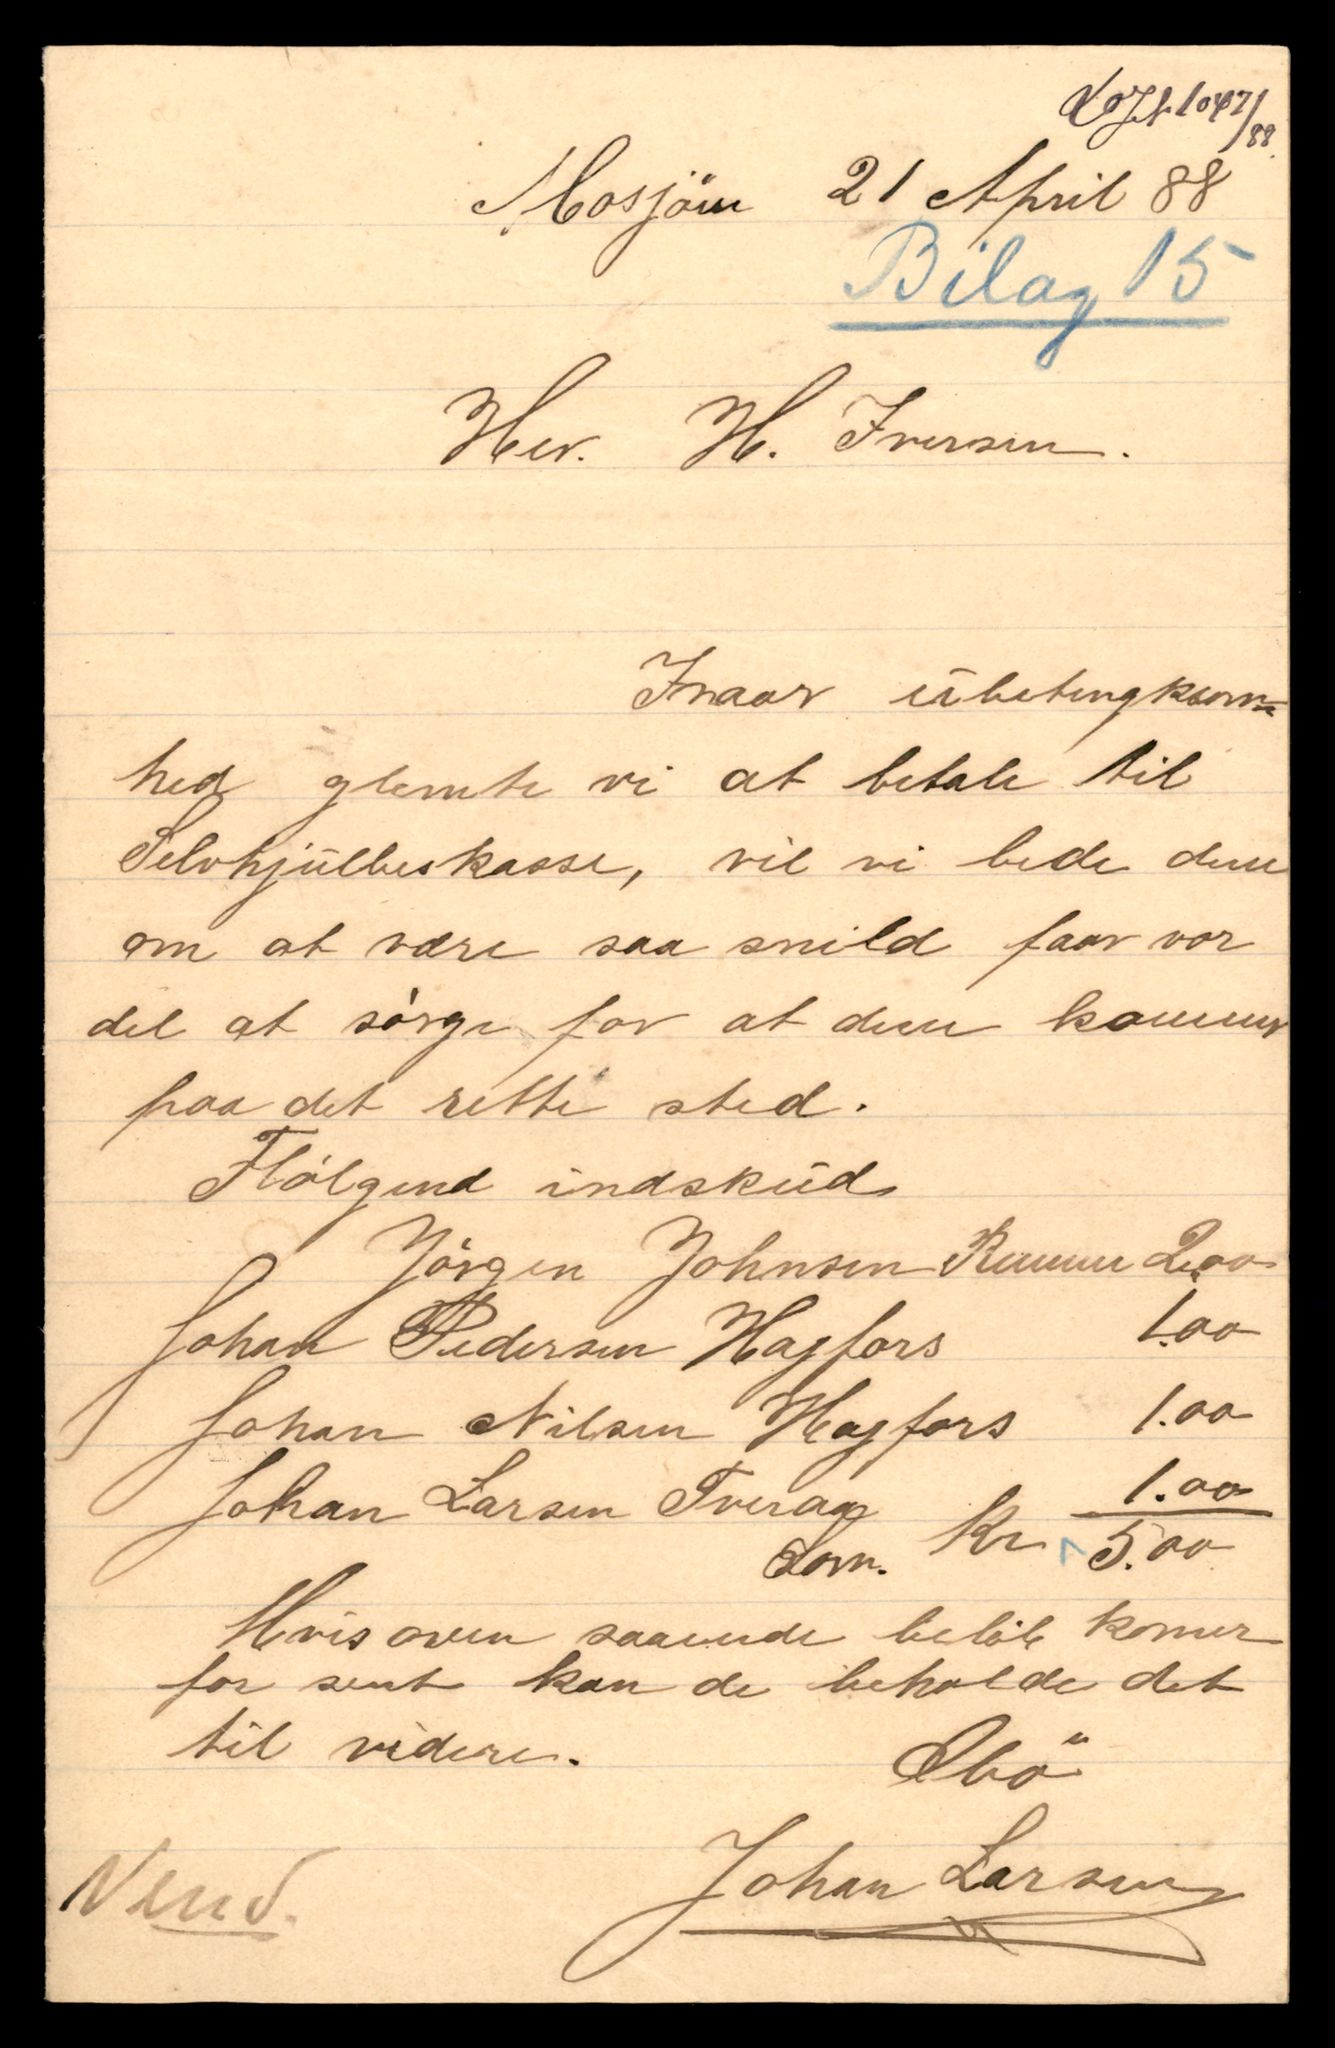 1047/88.
Mosjöen 21 April 88
Bilag 15
Her. H. Iversen.
I vaar übetengksom=
hed glemte vi at betale til
Selvhjülbeskasse, vil vi bede dem
om at være saa snild faar vor
del at sörge for at dem kommer
paa det rette sted.
Flölgend indsküd
Jörgen Johnsen Remmen 2.00
Johan Pedersen Hagfors 1.00
Johan Nilsen Hagfors 1.00
Johan Larsen Tveraa 1.00
Kr 5.00
Hvis oven saaende belöb komer
for sent kan de beholde det
til videre.
Obö
Johan Larsen
Vend.